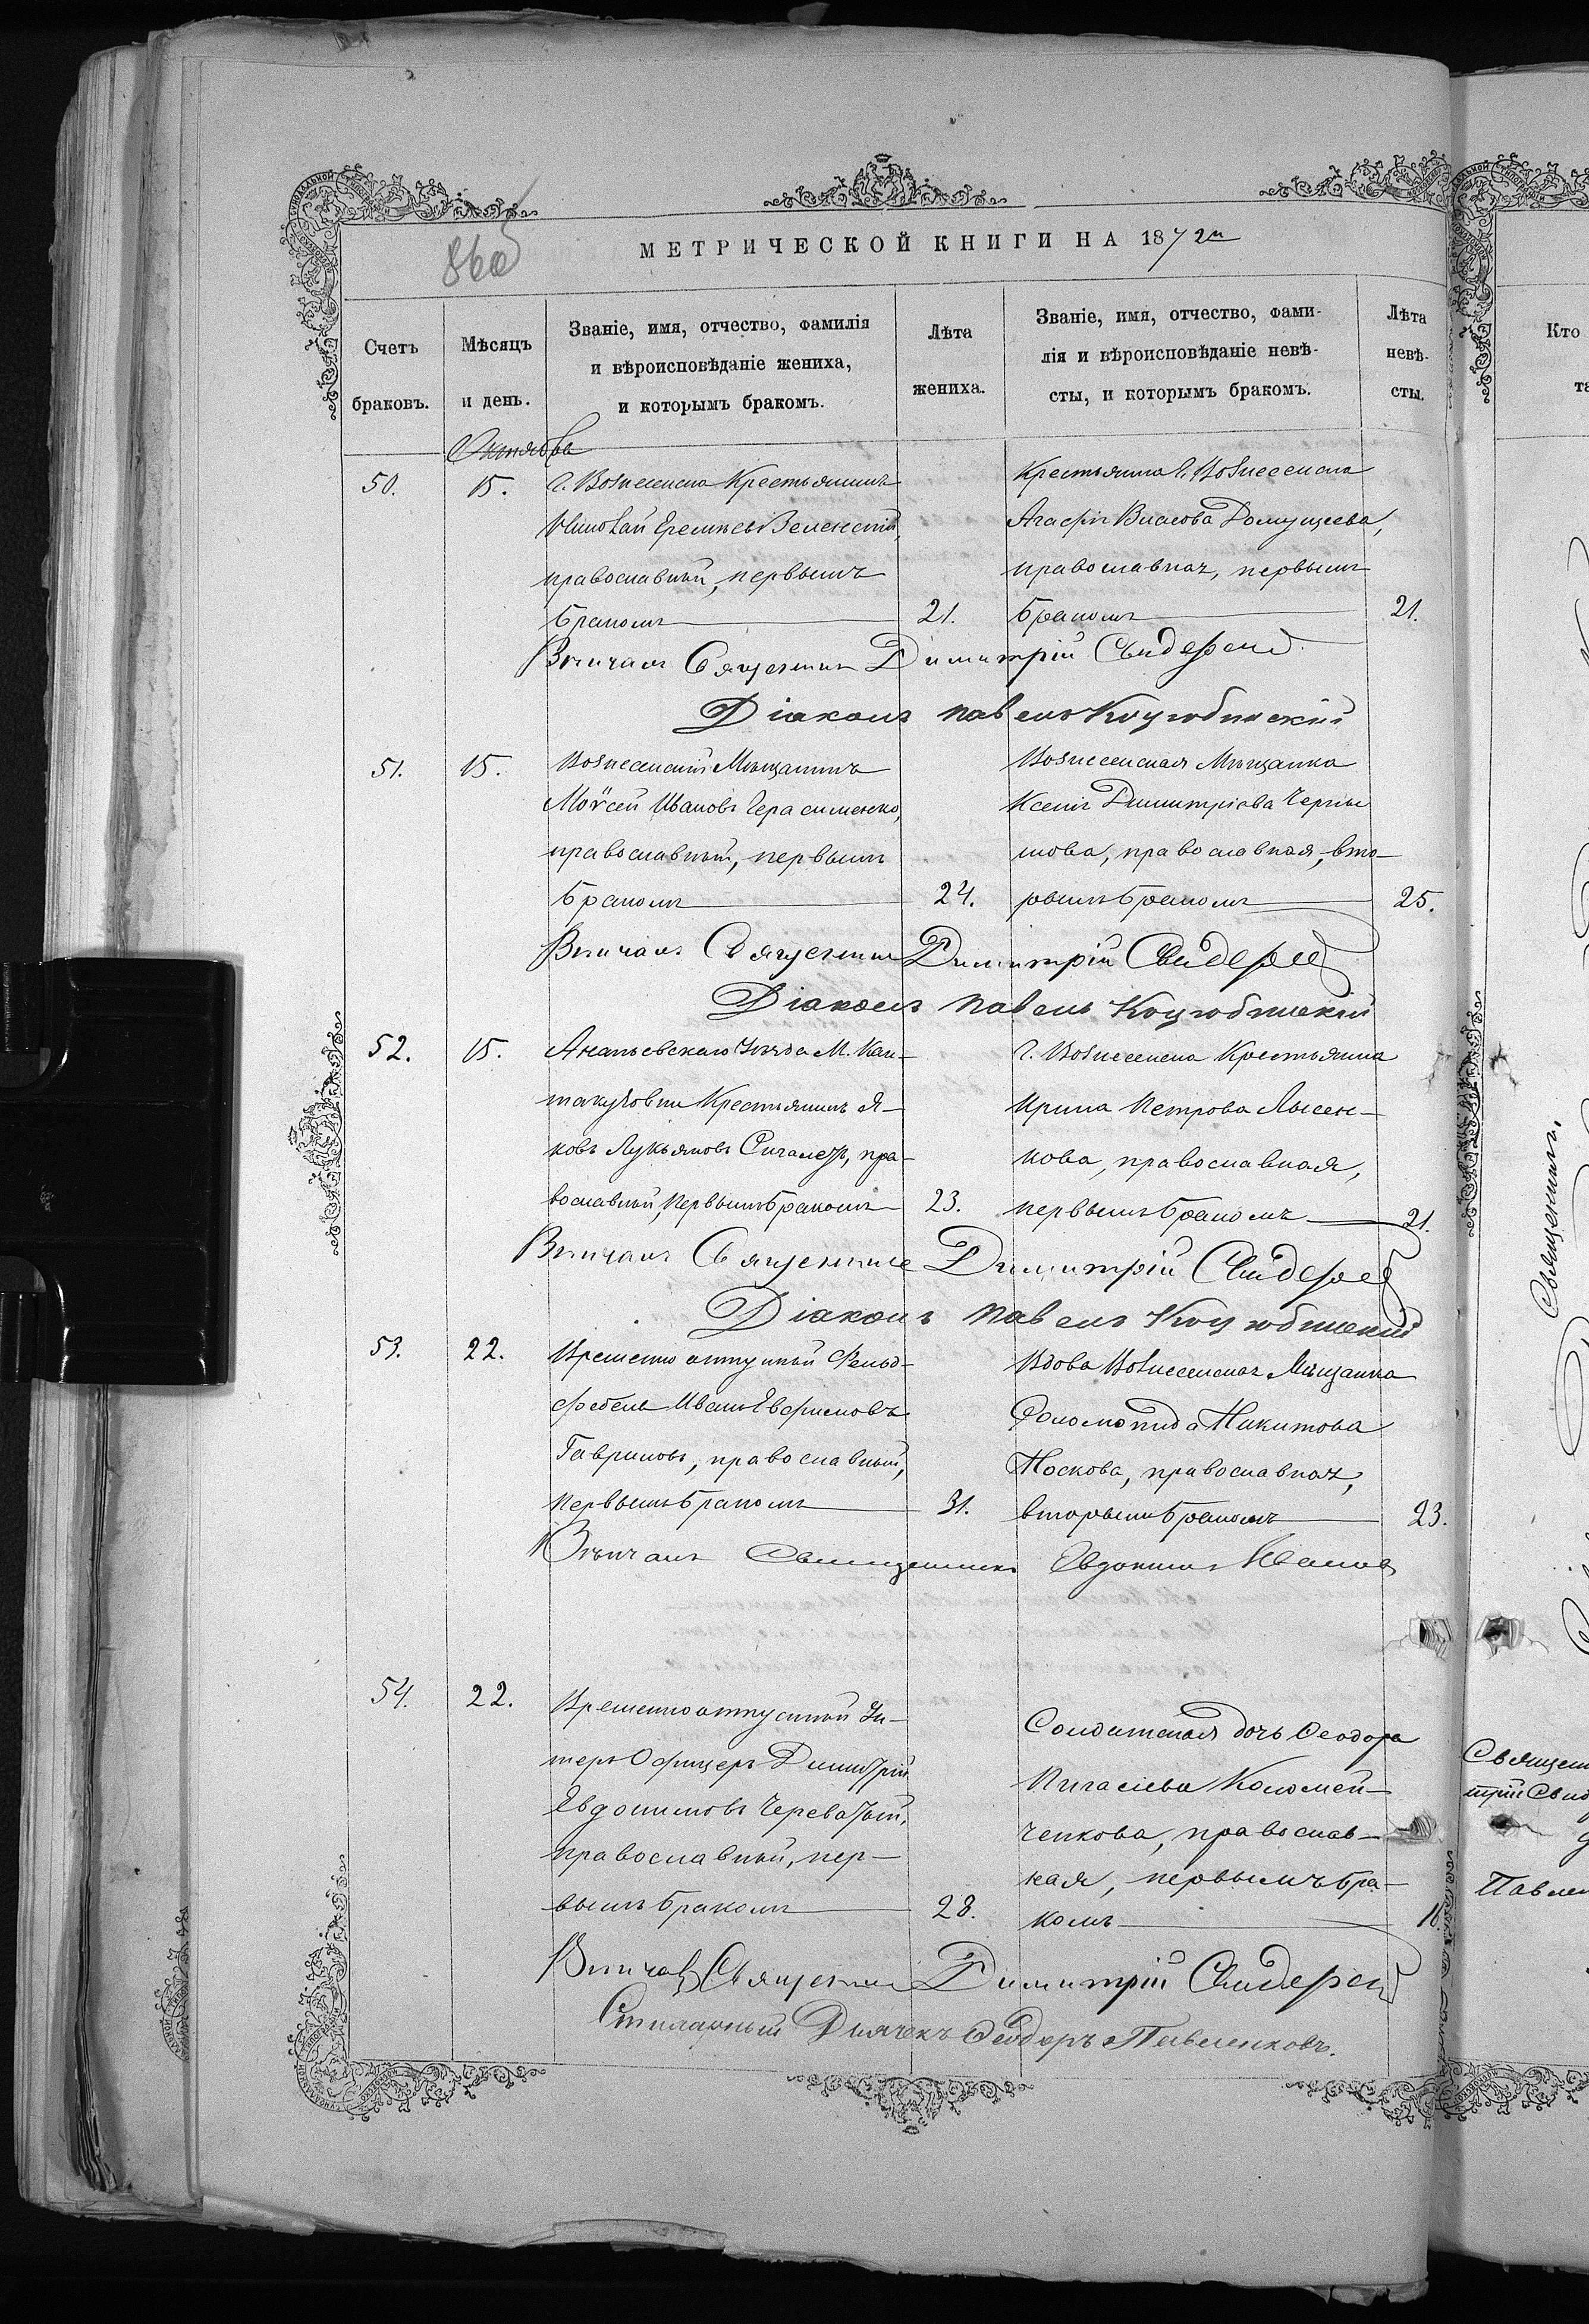 МЕТРИЧЕСКОЙ КНИГИ НА 1872й
860
Счетъ браковъ.
Мѣсяцъ и день.
Званіе, имя, отчество, фамилія
и вѣроисповѣданіе жениха,
и которымъ бракомъ.
Лѣта жениха.
Званіе, имя, отчество, фами-
лія и вѣроисповѣданіе невѣ-
сты, и которымъ бракомъ.
Лѣта невѣ-
сты.
Кто
Октября
50. 15.
г. Вознесенска Крестьянинъ
Николай Еремѣевъ Зеленскій,
православный, первымъ
бракомъ 21.
Крестьянка г. Вознесенска
Агафія Власова Домущеева,
православная, первымъ
бракомъ 21.
Вѣнчалъ Священникъ Димитрій
Діаконъ Павелъ Коцюбинскій
51. 15.
Вознесенскій Мѣщанинъ
Моѵсей Ивановъ Герасименко,
православный, первымъ
бракомъ 24.
Вознесенская Мѣщанка
Ксенія Димитріева Черны
шова, православная, вто-
рымъ бракомъ 25.
Вѣнчалъ Священникъ Димитрій
Діаконъ Павелъ Коцюбинскій
52. 15.
Ананьевскаго Уѣзда М. Кан-
такузовки Крестьянинъ Я-
ковъ Лукьяновъ пра-
вославный, первымъ бракомъ 23.
г. Вознесенска Крестьянка
Ирина Петрова Лысен-
кова, православная,
первымъ бракомъ 21.
Вѣнчалъ Священникъ Димитрій
Діаконъ Павелъ Коцюбинскій
53. 22.
Временно отпускной Фельд-
фебель Иванъ Евфимовъ
Гавриловъ, православный,
первымъ бракомъ 31.
Вдова Вознесенская Мѣщанка
Соломонида Никитова
Носкова, православная,
вторымъ бракомъ 23.
Вѣнчалъ Священникъ Евдокимъ Ивановъ
54. 22.
Временно отпускной Ун-
теръ Офицеръ Димитрій
Евдокимовъ Череватый,
православный, пер-
вымъ бракомъ 28.
Солдатская дочь Ѳеодора
Пигасіева Коломей-
ченкова, православ-
ная, первымъ бра-
комъ
Вѣнчалъ Священникъ Димитрій
Дьячекъ Ѳеодоръ Павленковъ.
Священникъ